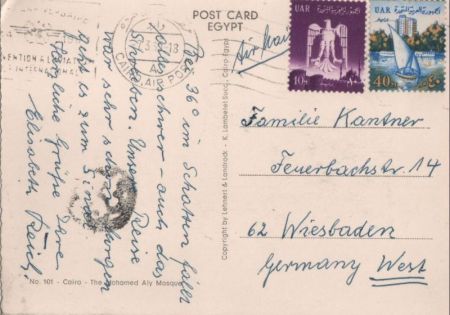 POST CARD
EGYPT
UAR
10
UAR
40
Air Mail
CAIRO AIR PORT
Bei 36° im Schatten fällt
alles schwer - auch das
Schreiben. Unsere Reise
war sehr schön. Morgen
geht es zum
Herzliche Grüße Ihre
Elisabeth Reich
Familie Kantner
Feuerbachstr. 14
62 Wiesbaden
Germany West
Copyright by Lehnert & Landrock - K. Lambelet Succ. Cairo-Egypt
No. 101 - Cairo - The Mohamed Aly Mosque